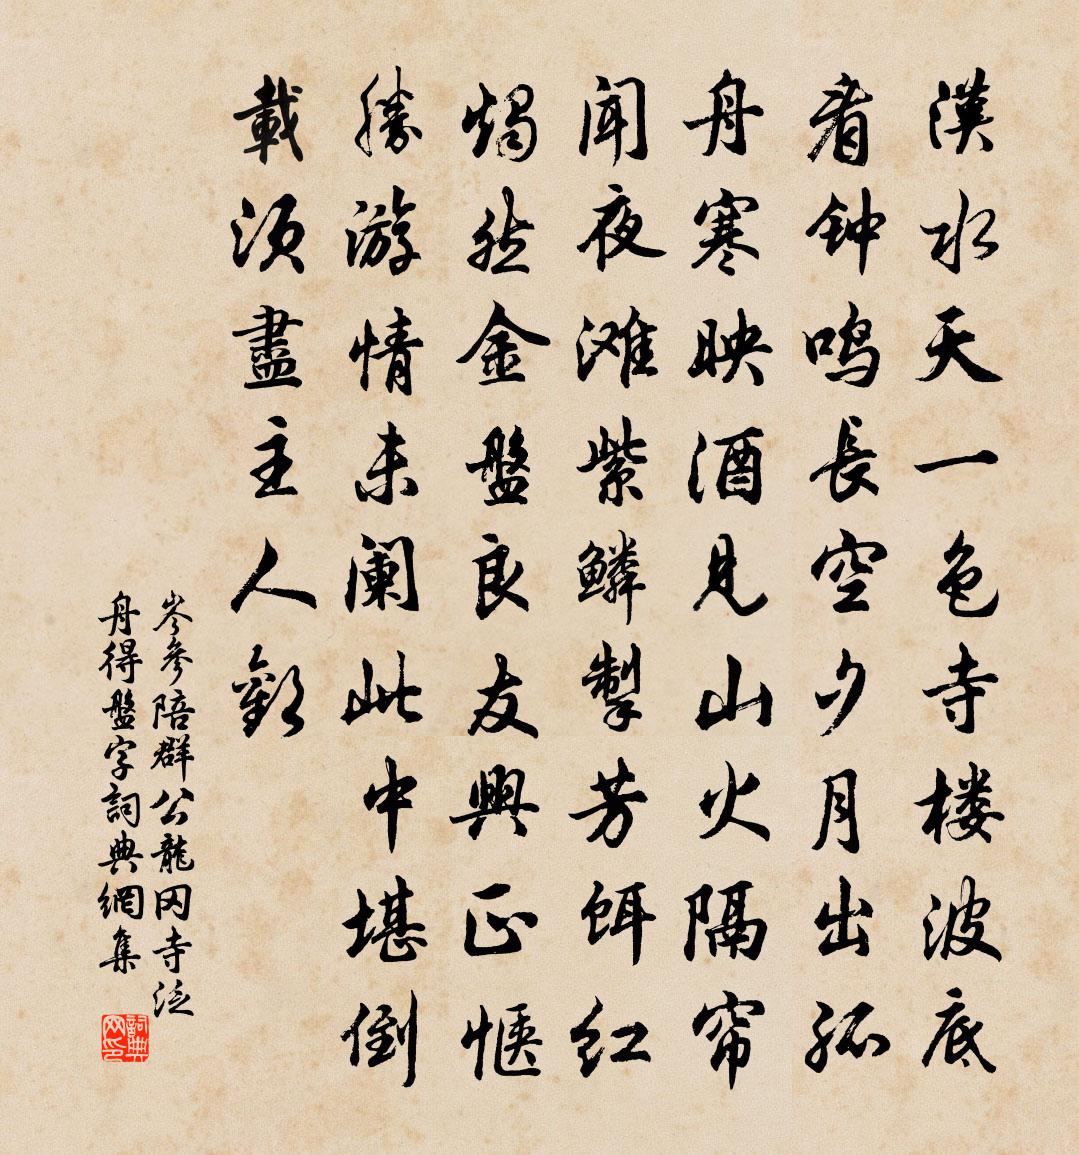 漢水天一色寺楼波底
看钟鸣長空夕月出孤
舟寒映酒見山火隔帘
闻夜滩紫鳞掣芳饵红
燭然金盤良友興正惬
勝游情未阑此中堪倒
載须盡主人歡
岑參陪群公龍冈寺泛
舟得盤字詞典網集
詞典网印